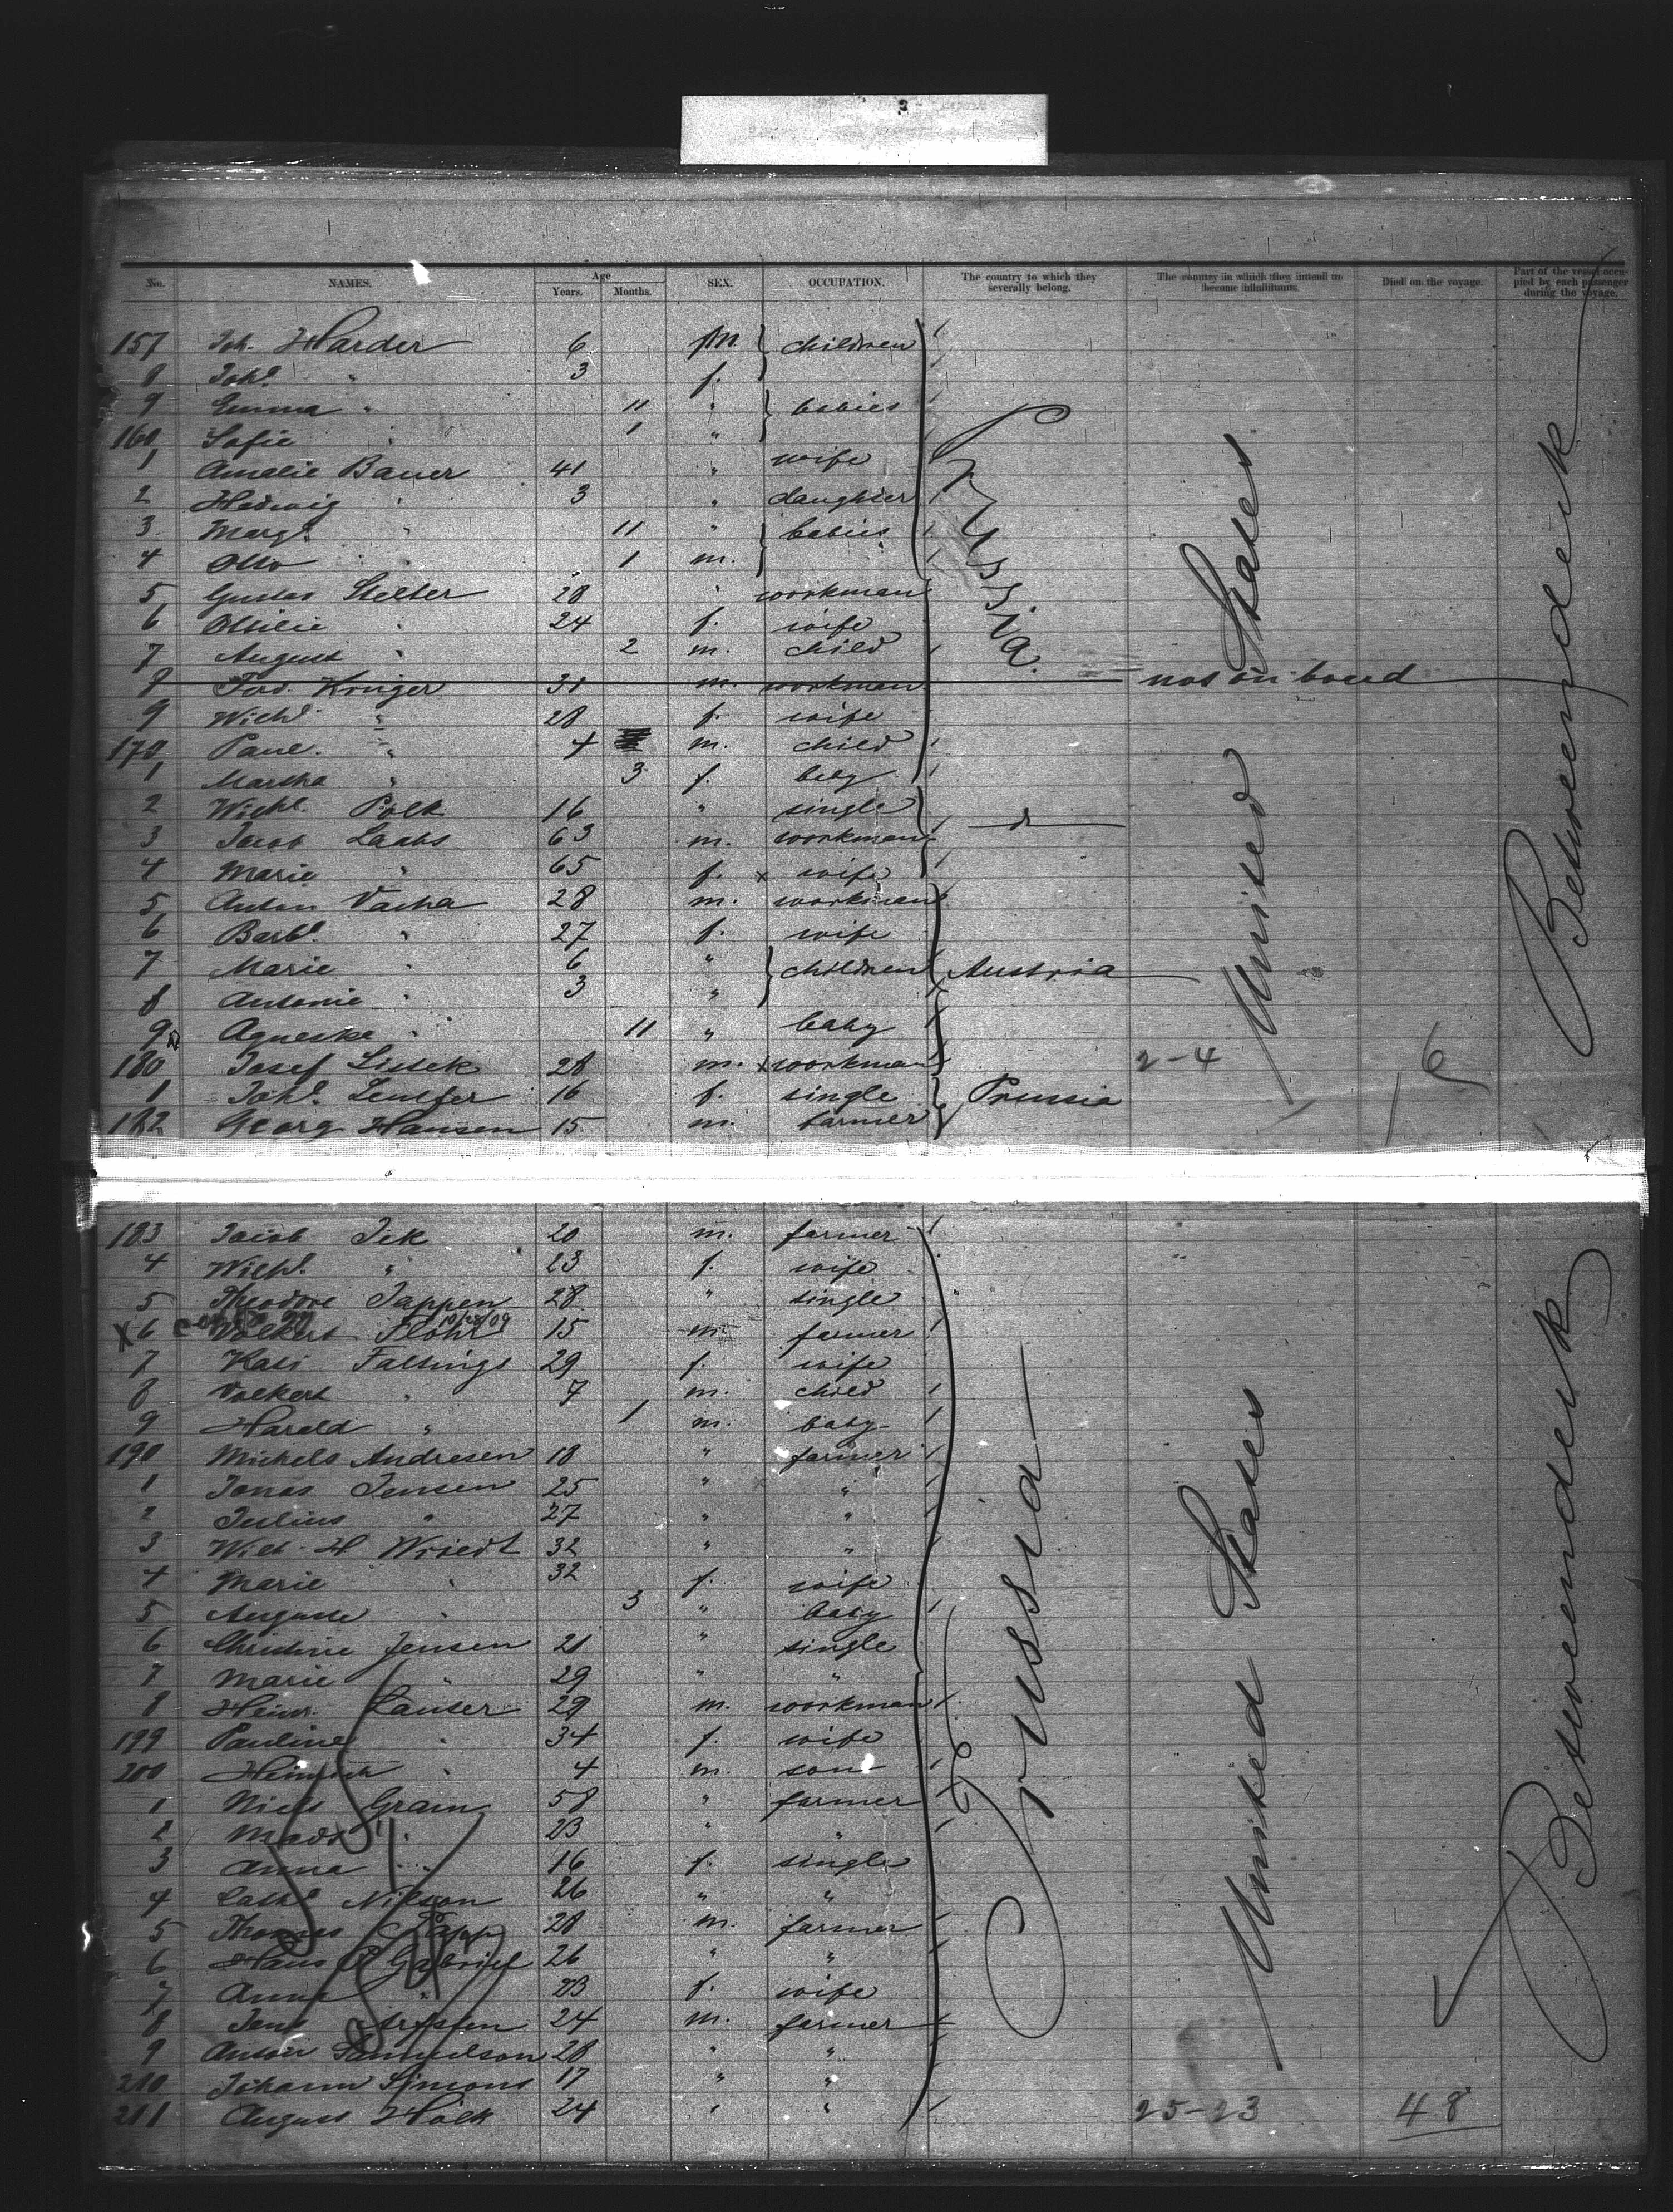 No. NAMES. Age Years. Months. SEX. OCCUPATION. The country to which they severally belong. The country in which they intend to become inhabitants. Died on the voyage. Part of the vessel occupied by each passenger during the voyage.
157 Joh. Harder 6 m. children
8 Joh.a " 3 f.
9 Emma " 11 " babies
160 Sofie " 1 "
1 Amalie Bauer 41 " wife
2 Hedwig " 3 " daughter
3 Marg. " 11 " babies
4 Otto " 1 m.
5 Gustav Stelter 28 " workman
6 Ottilie " 24 f. wife
7 August " 2 m. child
8 Ferd. Krüger 31 m. workman not on board
9 Wilh. " 28 f. wife
170 Paul " 4 m. child
1 Martha " 3 f. baby
2 Wilh. Polk 16 " single
3 Jacob Laabs 63 m. workman
4 Marie " 65 f. x wife
5 Anton Vacha 28 m. workman
6 Barb. " 27 f. wife
7 Marie " 6 " children Austria
8 Antonie " 3 "
9 Agneska " 11 " baby
180 Josef 28 m. x workman 2-4 6
1 Joh. 16 f. single Prussia
182 Georg Hansen 15 m. farmer
Prussia.
United States
Betweendeck
183 Jacob 20 m. farmer
4 Wilh. " 23 f. wife
5 Theodore Tappen 28 " single
x 6 Volkert Flohr 10/28/09 15 m. farmer
7 Kati Faltings 29 f. wife
8 Volkert " 7 m. child
9 Harald " 1 m. baby
190 Michels Andresen 18 " farmer
1 Jonas Jensen 25 " "
2 Julius " 27 " "
3 Wilh. H Wriedt 32 " "
4 Marie " 32 f. wife
5 Auguste " 3 " baby
6 Christine Jensen 21 " single
7 Marie " 29 " "
8 Heinr. Lauser 29 m. workman
199 Pauline " 34 f. wife
200 Heinrich " 4 m. son
1 Niels Gram 58 " farmer
2 Mads " 23 " "
3 Anna " 16 f. single
4 Cath. Nilsson 26 " "
5 Thomas 28 m. farmer
6 Hans P Gabriel 26 " "
7 Anna " 23 f. wife
8 Jens 24 m. farmer
9 Anton Samuelson 28 " "
210 Johann Simons 17 " "
211 August Holk 24 " " 25-23 48
Prussia
United States
Betweendeck